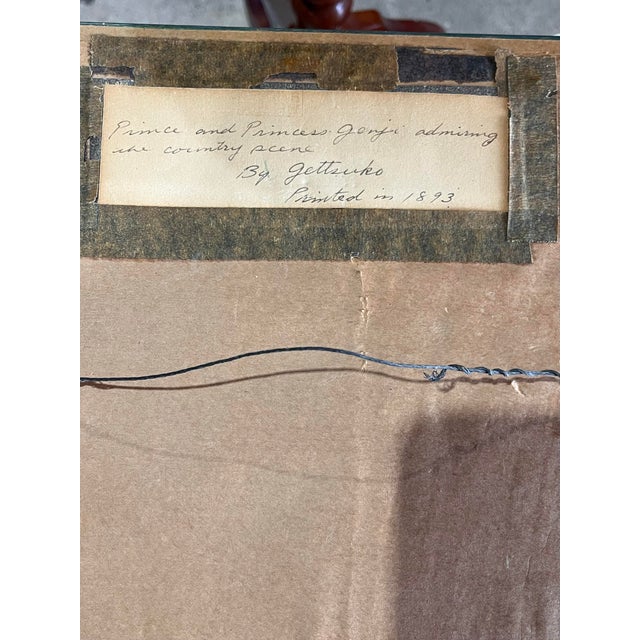 Prince and Princess Genji admiring
the country scene
By Gettsuko
Printed in 1893